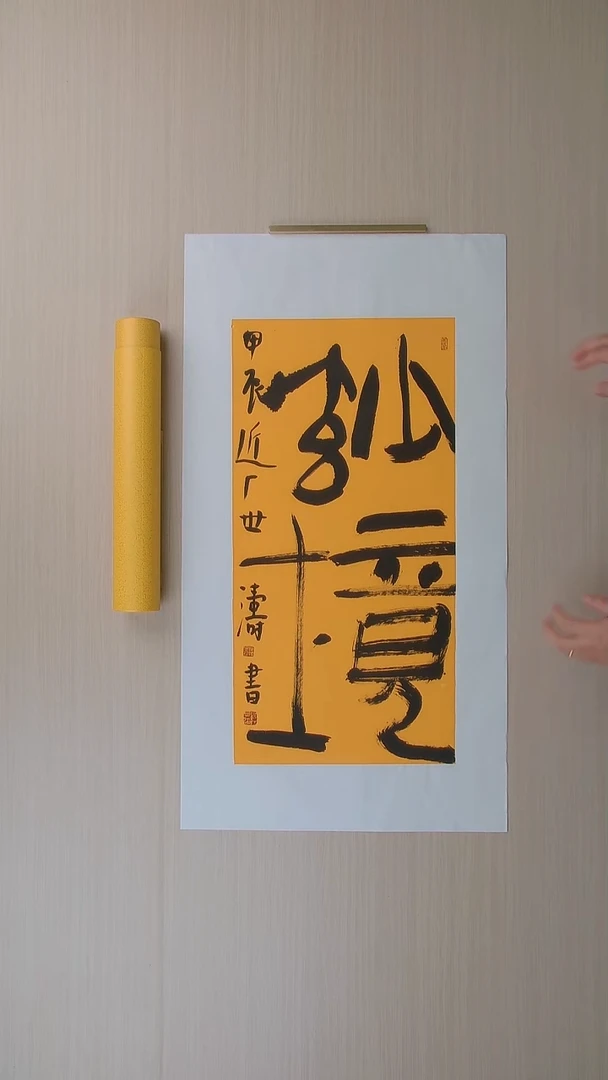 玅境
甲辰近厂世濤書